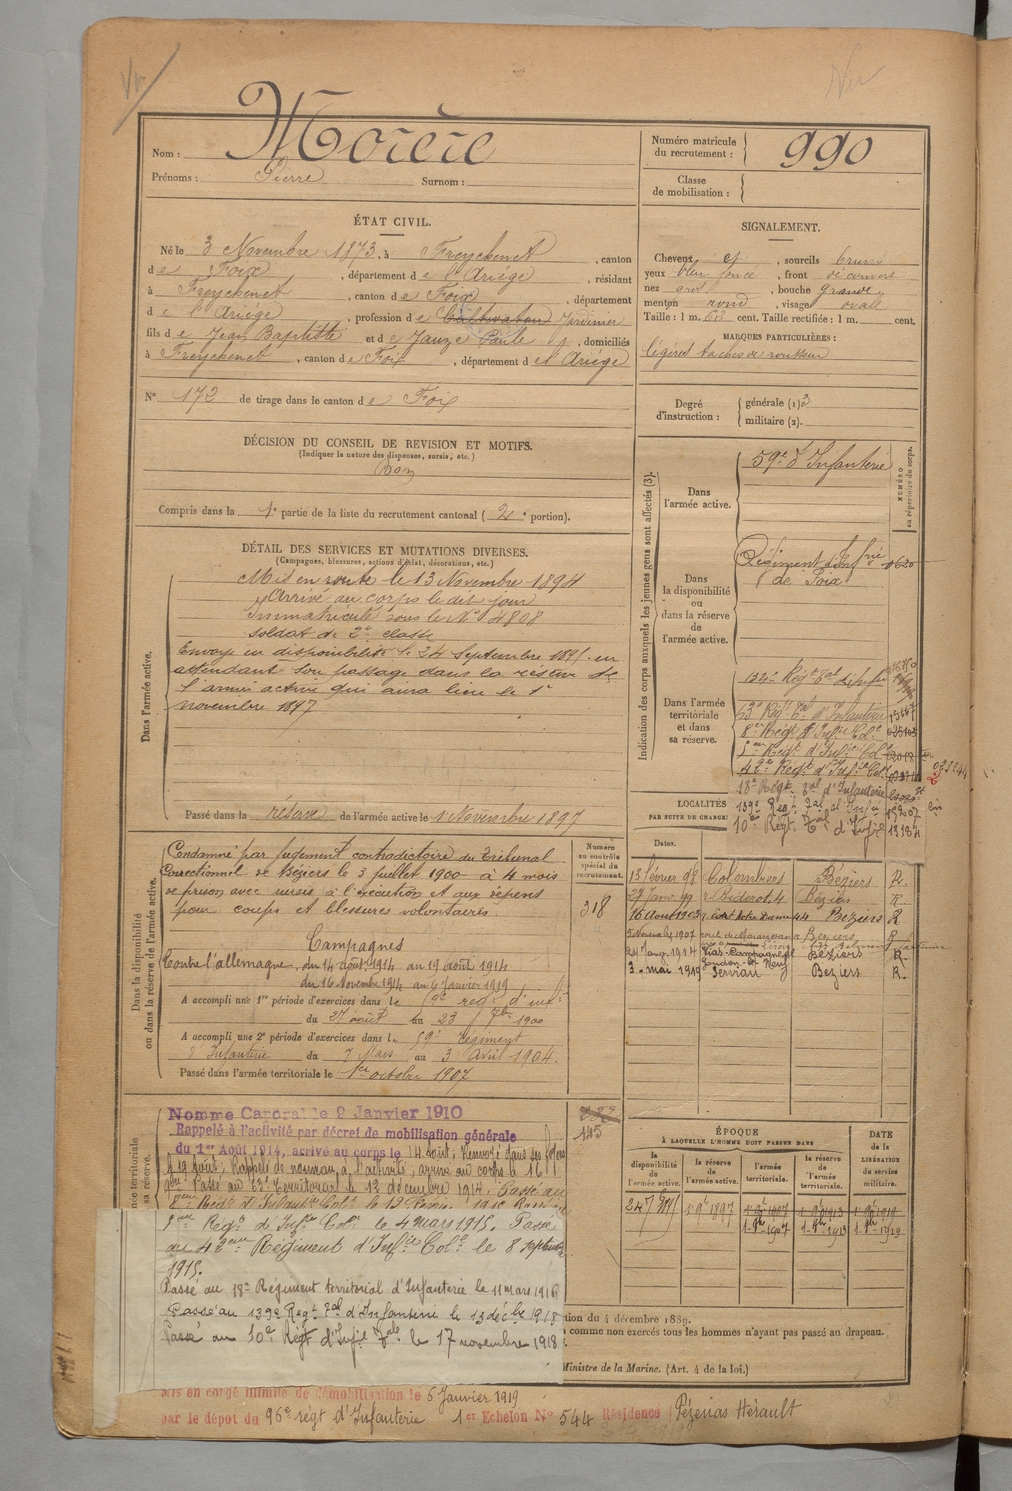 Nom : Morère
Prénoms : Pierre Surnom :
Numéro matricule du recrutement : 990
Classe de mobilisation :
ÉTAT CIVIL.
Né le 3 Novembre 1873, à Freychenet, canton
de Foix, département de l'Ariége, résidant
à Freychenet, canton de Foix, département
de l'Ariége, profession de Cultivateur Jardinier
fils de Jean Baptiste et de Jauze Paule, domiciliés
à Freychenet, canton de Foix, département de l'Ariége
N° 172 de tirage dans le canton de Foix
SIGNALEMENT.
Cheveux et sourcils bruns
yeux bleu foncé, front découvert
nez gros, bouche grande
menton rond, visage ovale
Taille : 1 m. cent. Taille rectifiée : 1 m. cent.
MARQUES PARTICULIÈRES :
légères taches de rousseur
Degré d'instruction : générale (1) 3
militaire (2).
DÉCISION DU CONSEIL DE REVISION ET MOTIFS.
(Indiquer la nature des dispenses, sursis, etc.)
Bon
Compris dans la 1e partie de la liste du recrutement cantonal (2e portion).
DÉTAIL DES SERVICES ET MUTATIONS DIVERSES.
(Campagnes, blessures, actions d'éclat, décorations, etc.)
Dans l'armée active.
Mis en route le 13 Novembre 1894
Arrivé au corps le dit jour
Immatriculé sous le N° 4808
soldat de 2e classe
Envoyé en disponibilité le 24 Septembre 1895 en
attendant son passage dans la réserve de
l'armée active qui aura lieu le 1er
novembre 1897
Passé dans la réserve de l'armée active le 1 Novembre 1897
Indication des corps auxquels les jeunes gens sont affectés (3).
NUMÉRO au répertoire du corps.
Dans l'armée active.
59e d'Infanterie
Dans la disponibilité ou dans la réserve de l'armée active.
Régiment d'Infrie
de Foix
Dans l'armée territoriale et dans sa réserve.
134e Régt Tal d'Infie
63e Régt Tal d'Infanterie
8e Régt d'Infie Cole
5e Régt d'Infie Cole
42e Régt d'Infie Cole
18e Régt Tal d'Infanterie
139e Régt Tal d'Infie
10e Régt Tal d'Infie
LOCALITÉS
PAR SUITE DE CHANGE
Dates.
13 février 98 Colombiers Béziers R.
27 Janv 99 r. Diderot, 4 Béziers R.
16 Août 1903 44 Béziers R
5 Novembre 1907 Béziers R
24 Janv. 1914 Béziers R.
3 mai 1919 Servian Béziers R.
Dans la disponibilité ou dans la réserve de l'armée active.
Numéro au contrôle spécial du recrutement.
318
Condamné par jugement contradictoire du Tribunal
Correctionnel de Béziers le 3 juillet 1900 à 4 mois
de prison avec sursis à l'exécution et aux dépens
pour coups et blessures volontaires.
Campagnes
Contre l'allemagne, du 14 août 1914 au 19 août 1914
du 16 Novembre 1914 au 6 Janvier 1919
A accompli une 1re période d'exercices dans le 59e reg. d'inf.
du 27 août au 23 7bre 1900
A accompli une 2e période d'exercices dans le 59e Régiment
d'Infanterie du 7 Mars au 3 Avril 1904.
Passé dans l'armée territoriale le 1er octobre 1907
Nommé Caporal le 9 Janvier 1910
Rappelé à l'activité par décret de mobilisation générale
du 1er Août 1914, arrivé au corps le 14 Août; Renvoyé dans ses foyers
le 19 Août; Rappelé de nouveau à l'activité, arrivé au corps le 16
9bre Passé au 63e territorial le 12 décembre 1914. Passé au
5eme Regt d'Infrie Colle le 4 mars 1915. Passé
au 42eme Régiment d'Infrie Colle le 8 septembre
1915.
Passé au 18e Régiment territorial d'Infanterie le 11 mars 1916
Passé au 139e Regt Tal d'Infanterie le 13 décbre 1918
Passé au 10e Régt d'Infie Tale le 17 novembre 1918
145
ÉPOQUE
À LAQUELLE L'HOMME DOIT PASSER DANS
la disponibilité de l'armée active.
la réserve de l'armée active.
l'armée territoriale.
la réserve de l'armée territoriale.
DATE de la LIBÉRATION du service militaire.
24 7bre 1895 1er 9e 1897 1er 9e 1907 1er 9e 1913 1er 9e 1919
1 8bre 1907 1 8bre 1913 1 8bre 1919
tion du 4 décembre 1889.
comme non exercés tous les hommes n'ayant pas passé au drapeau.
Ministre de la Marine. (Art. 4 de la loi.)
Mis en congé illimité de démobilisation le 6 Janvier 1919
par le dépôt du 96e régt d'Infanterie 1er Echelon N° 544 Résidence Pézenas Hérault